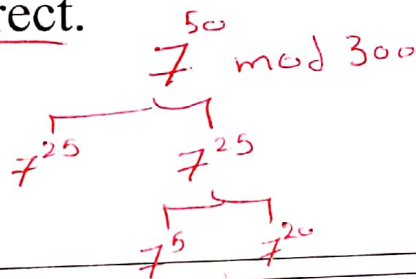 rect.
7^50 mod 300
7^25 7^25
7^5 7^20